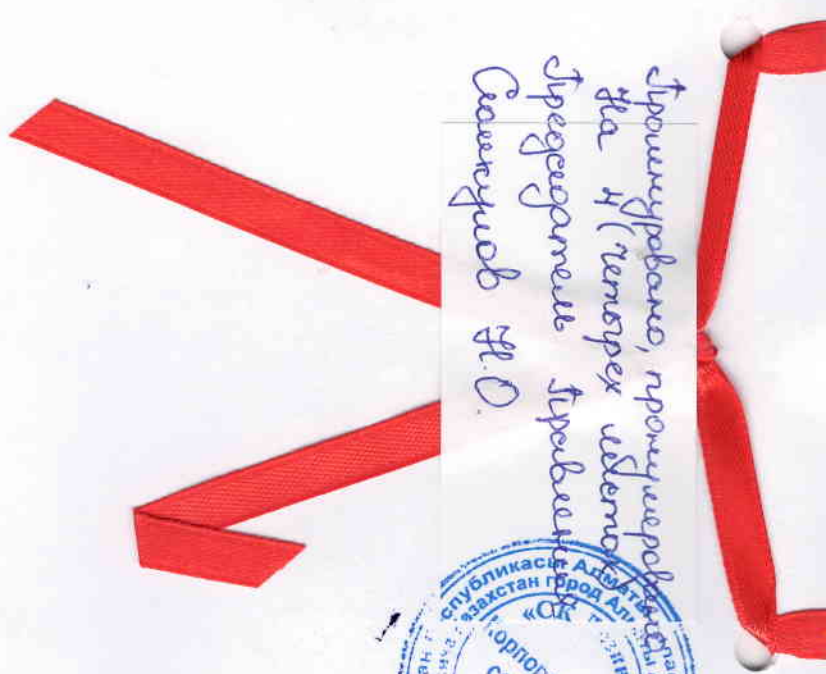 Прошнуровано, пронумеровано
На 4 (четырех листах
Председатель Правления
Н.О.
спубликасы Алматы
азахстан город Ал
«ОК
корпор